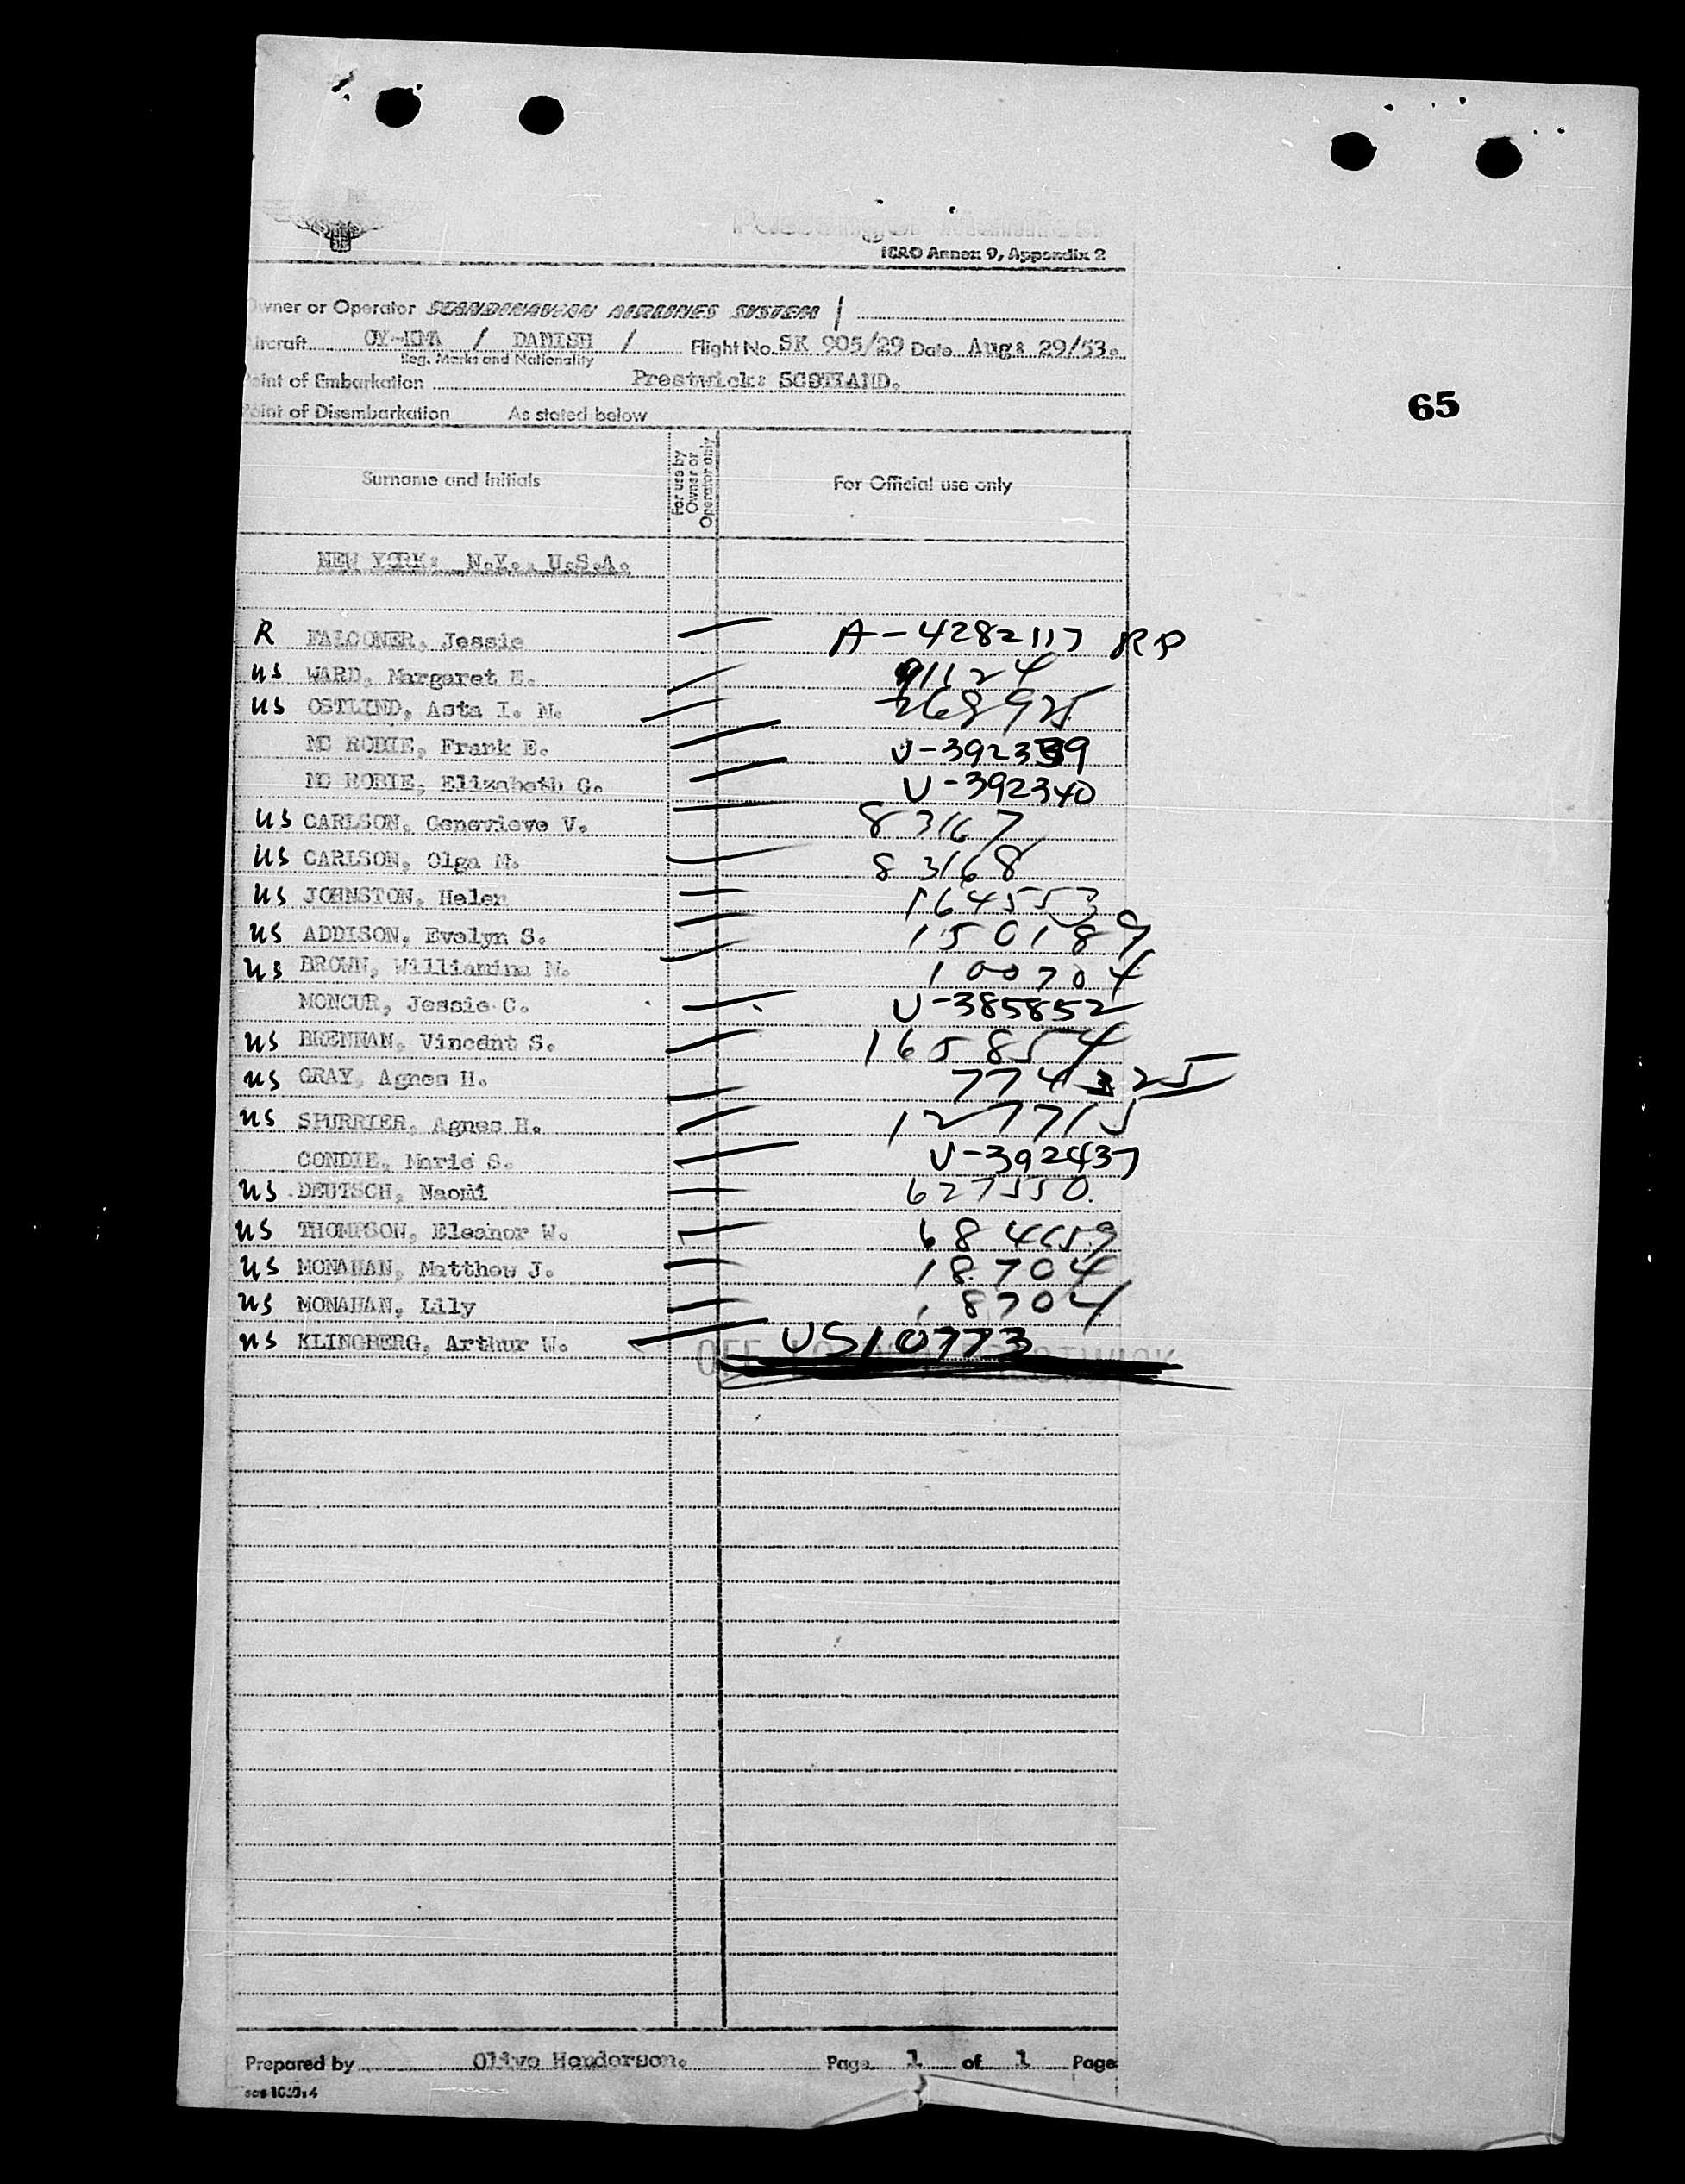 Passenger Manifest
ICAO Annex 9, Appendix 2
Owner or Operator SCANDINAVIAN AIRLINES SYSTEM /
Aircraft OY-KMA / DANISH / Flight No. SK 905/29 Date Aug: 29/53.
Reg. Marks and Nationality
Point of Embarkation Prestwick: SCOTLAND.
65
Point of Disembarkation As stated below
Surname and Initials For use by Owner or Operator only For Official use only
NEW YORK: N.Y.. U.S.A.
R FALCONER, Jessie A-4282117 RP
US WARD, Margaret E. 91124
US OSTLIND, Asta I. N. 268925
MC ROBIE, Frank E. U-392339
MC ROBIE, Elizabeth G. U-392340
US CARLSON, Genevieve V. 83167
US CARLSON, Olga M. 83168
US JOHNSTON, Helen 164553
US ADDISON, Evelyn S. 150189
US BROWN, Williamina N. 100704
MONCUR, Jessie C. U-385852
US BRENNAN, Vincent S. 165854
US GRAY, Agnes H. 774325
US SPURRIER, Agnes H. 127715
CONDIE, Marie S. U-392437
US DEUTSCH, Naomi 627550.
US THOMPSON, Eleanor W. 684659
US MONAHAN, Matthew J. 18704
US MONAHAN, Lily 18704
US KLINGBERG, Arthur W. US10773
Prepared by Olive Henderson. Page 1 of 1 Page